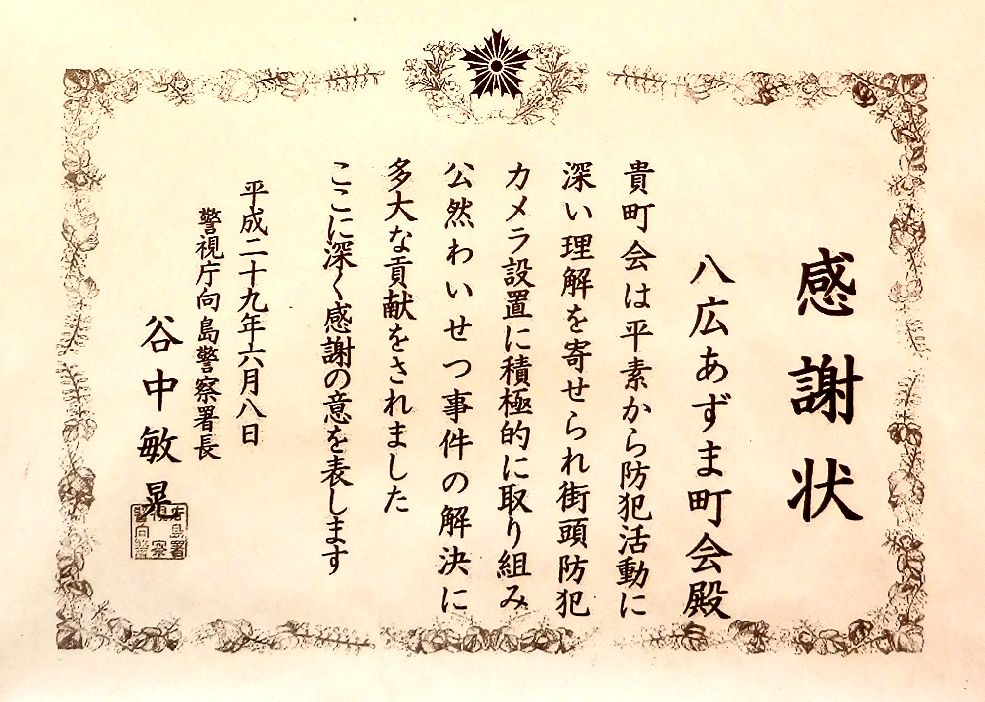 感謝状
八広あずま町会殿
貴町会は平素から防犯活動に
深い理解を寄せられ街頭防犯
カメラ設置に積極的に取り組み
公然わいせつ事件の解決に
多大な貢献をされました
ここに深く感謝の意を表します
平成二十九年六月八日
警視庁向島警察署長
谷中敏晃